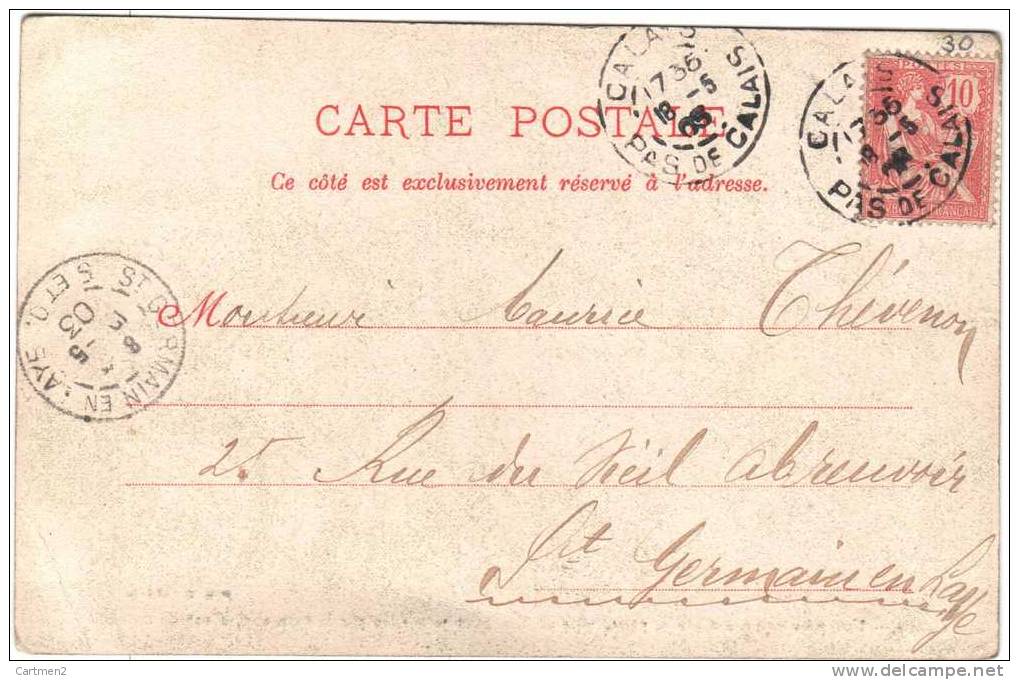 30
CALAIS
17 35
18 -5
03
PAS DE CALAIS
POSTES
10
CALAIS
17 35
18 -5
PAS DE CALAIS
FRANÇAISE
CARTE POSTALE
Ce côté est exclusivement réservé à l'adresse.
ST GERMAIN EN LAYE
S ET O.
5
03
Monsieur Maurice Thévenon
25 Rue du Vieil abreuvoir
St Germain en Laye
Cartmen2
www.delcampe.net